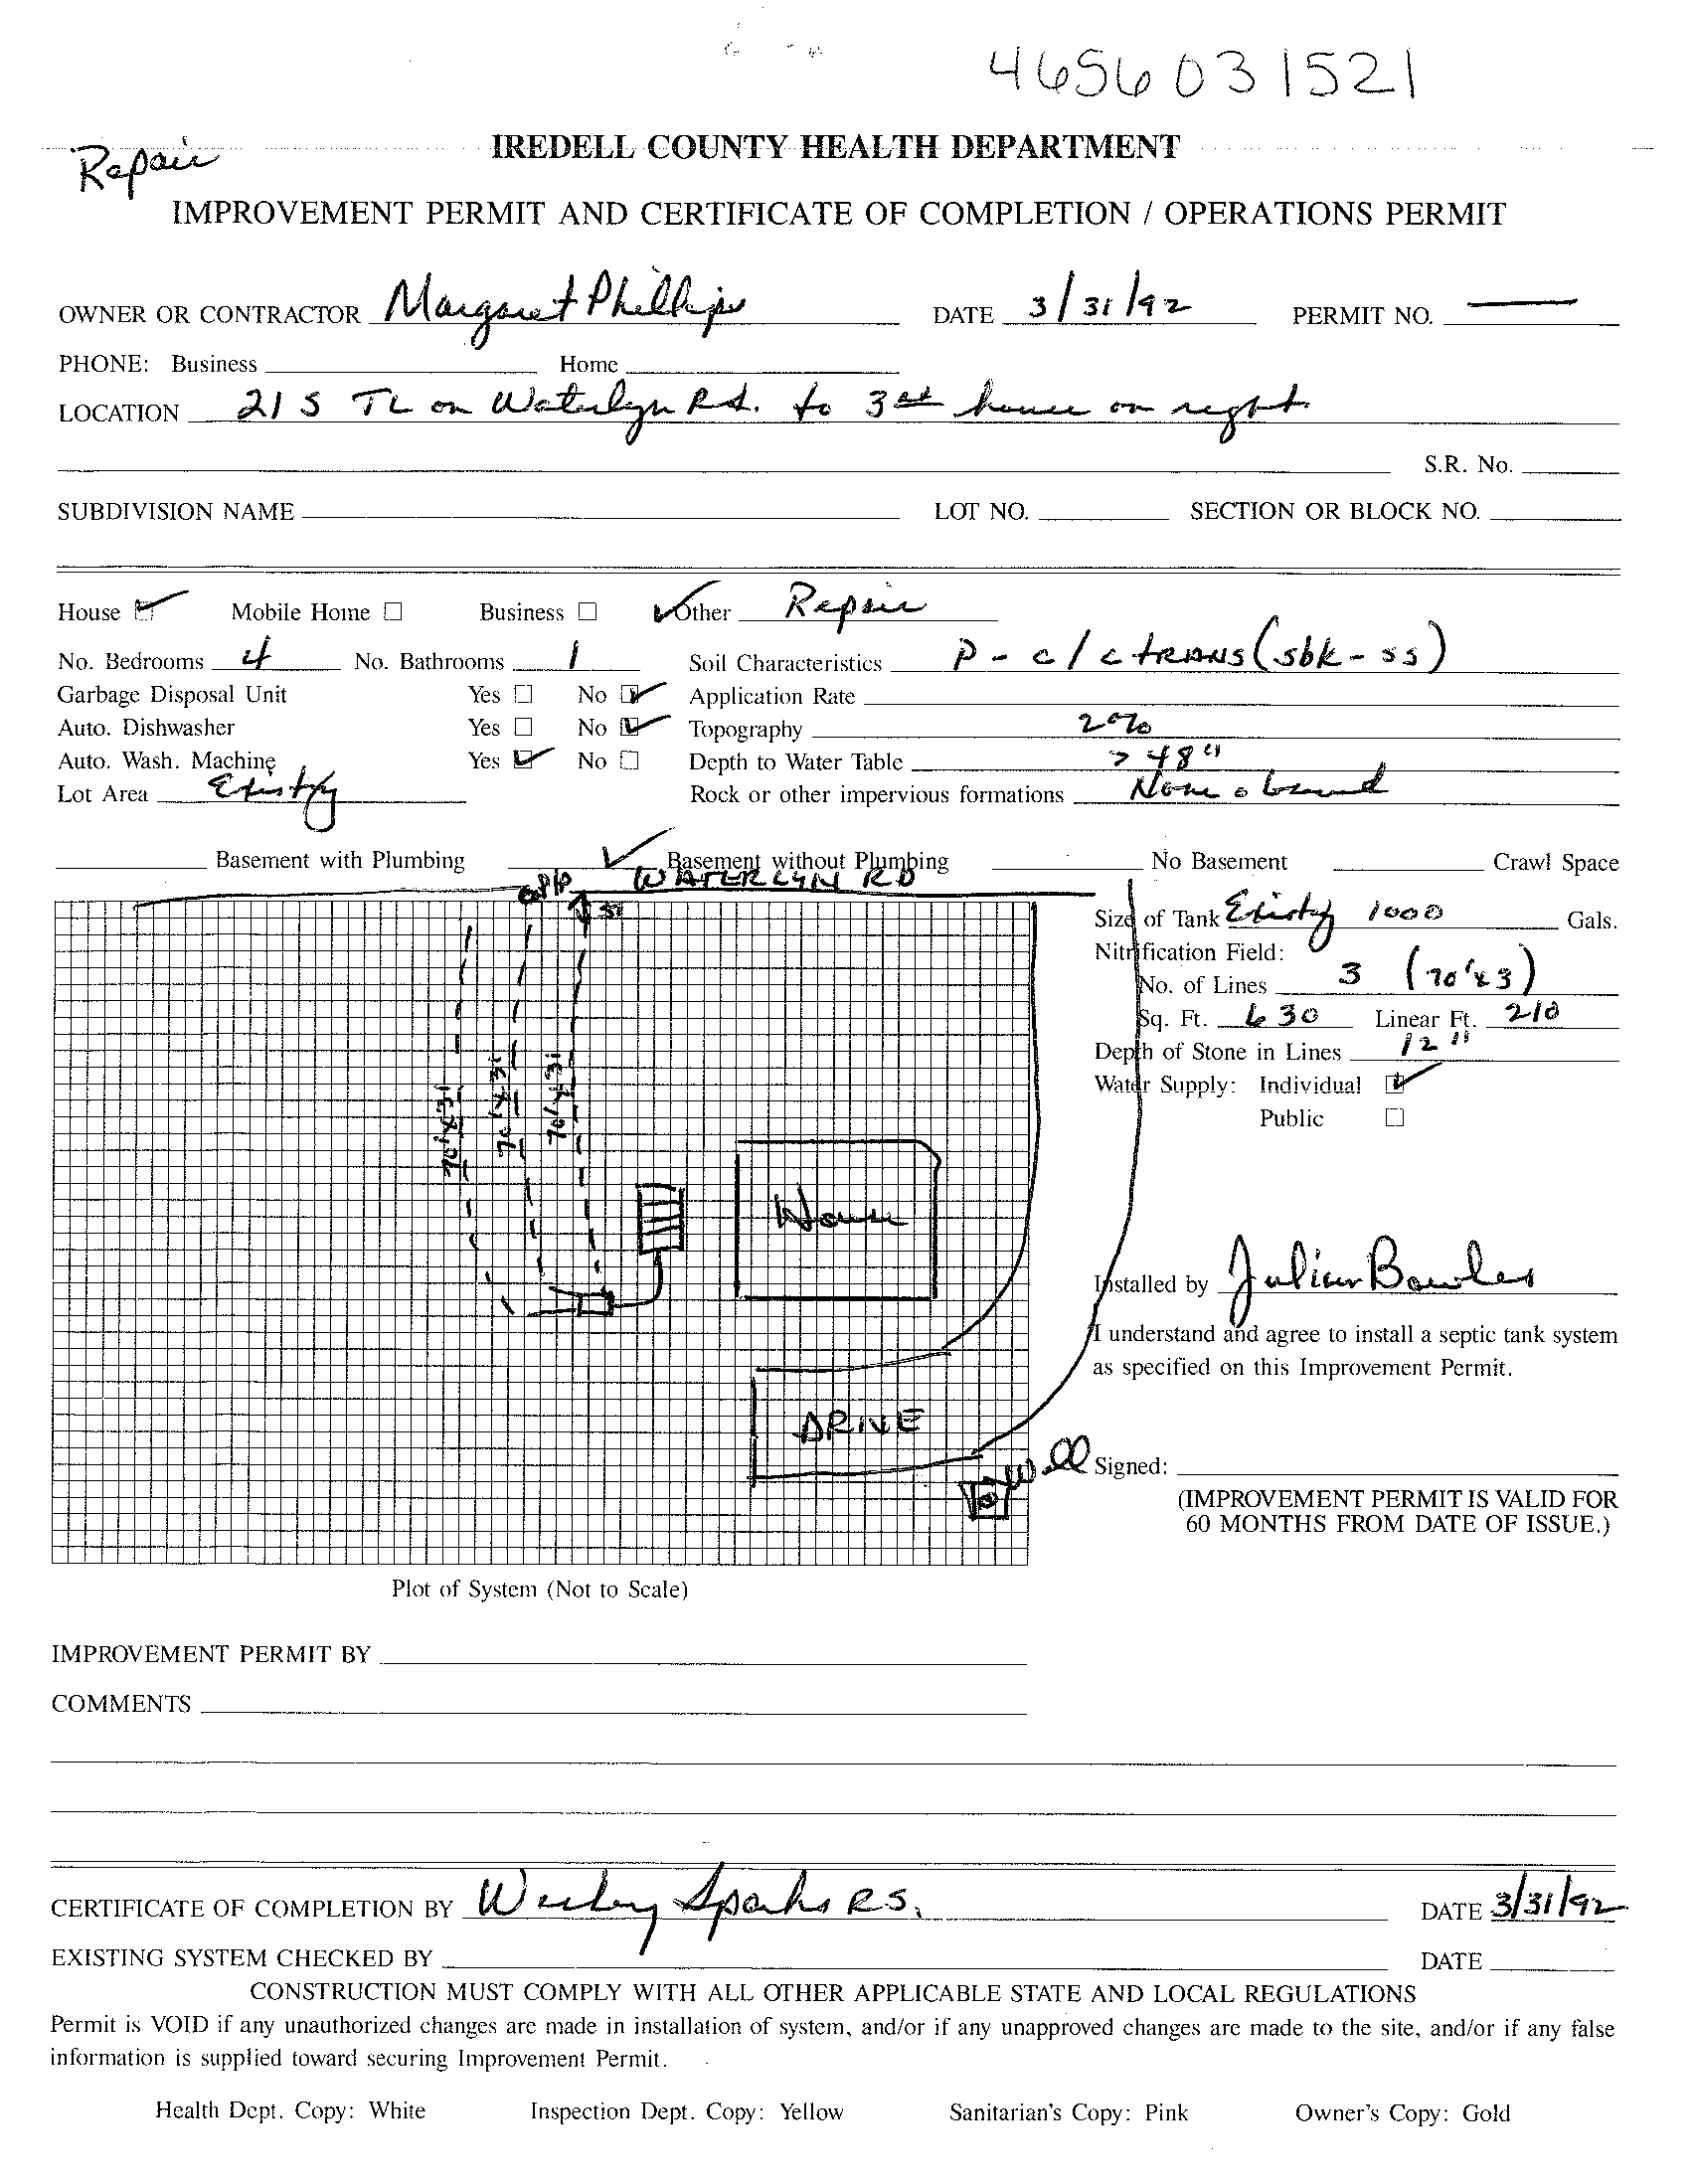 4656 03 1521
Repair
IREDELL COUNTY HEALTH DEPARTMENT
IMPROVEMENT PERMIT AND CERTIFICATE OF COMPLETION / OPERATIONS PERMIT
OWNER OR CONTRACTOR Margaret Phillips DATE 3/31/92 PERMIT NO. —
PHONE: Business Home
LOCATION 21 S TL on Waterlyn Rd. to 3rd house on right
S.R. No.
SUBDIVISION NAME LOT NO. SECTION OR BLOCK NO.
House ☑ Mobile Home ☐ Business ☐ ✓ Other Repair
No. Bedrooms 4 No. Bathrooms 1 Soil Characteristics P - c/c TRANS (sbk - ss)
Garbage Disposal Unit Yes ☐ No ☑ Application Rate
Auto. Dishwasher Yes ☐ No ☑ Topography 2%
Auto. Wash. Machine Yes ☑ No ☐ Depth to Water Table > 48"
Lot Area Existing Rock or other impervious formations None observed
Basement with Plumbing ✓ Basement without Plumbing No Basement Crawl Space
P/P WATERLYN RD
5'
Size of Tank Existing 1000 Gals.
Nitrification Field:
No. of Lines 3 (70'x3)
Sq. Ft. 630 Linear Ft. 210
Depth of Stone in Lines 12"
Water Supply: Individual ☑
Public ☐
70'x3'
70'x3'
70'x3'
House
Installed by Julian Bowles
I understand and agree to install a septic tank system
as specified on this Improvement Permit.
DRIVE
Well
Signed:
(IMPROVEMENT PERMIT IS VALID FOR
60 MONTHS FROM DATE OF ISSUE.)
Plot of System (Not to Scale)
IMPROVEMENT PERMIT BY
COMMENTS
CERTIFICATE OF COMPLETION BY Wesley Sparks R.S. DATE 3/31/92
EXISTING SYSTEM CHECKED BY DATE
CONSTRUCTION MUST COMPLY WITH ALL OTHER APPLICABLE STATE AND LOCAL REGULATIONS
Permit is VOID if any unauthorized changes are made in installation of system, and/or if any unapproved changes are made to the site, and/or if any false
information is supplied toward securing Improvement Permit.
Health Dept. Copy: White Inspection Dept. Copy: Yellow Sanitarian's Copy: Pink Owner's Copy: Gold